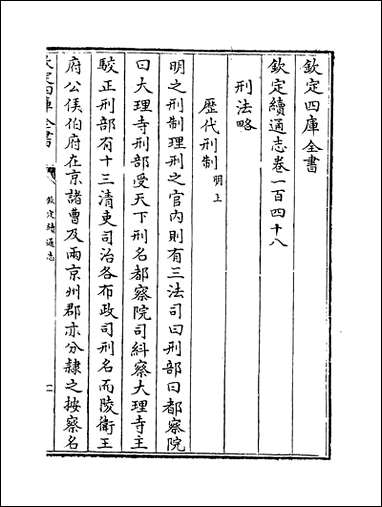 欽定四庫全書
欽定續通志卷一百四十八
刑法略
歷代刑制明上
明之刑制理刑之官内則有三法司曰刑部曰都察院
曰大理寺刑部受天下刑名都察院司糾察大理寺主
駁正刑部有十三清吏司治各布政司刑名而陵衛王
府公侯伯府在京諸曹及兩京州郡亦分隸之按察名
欽定四庫全書
欽定續通志
一